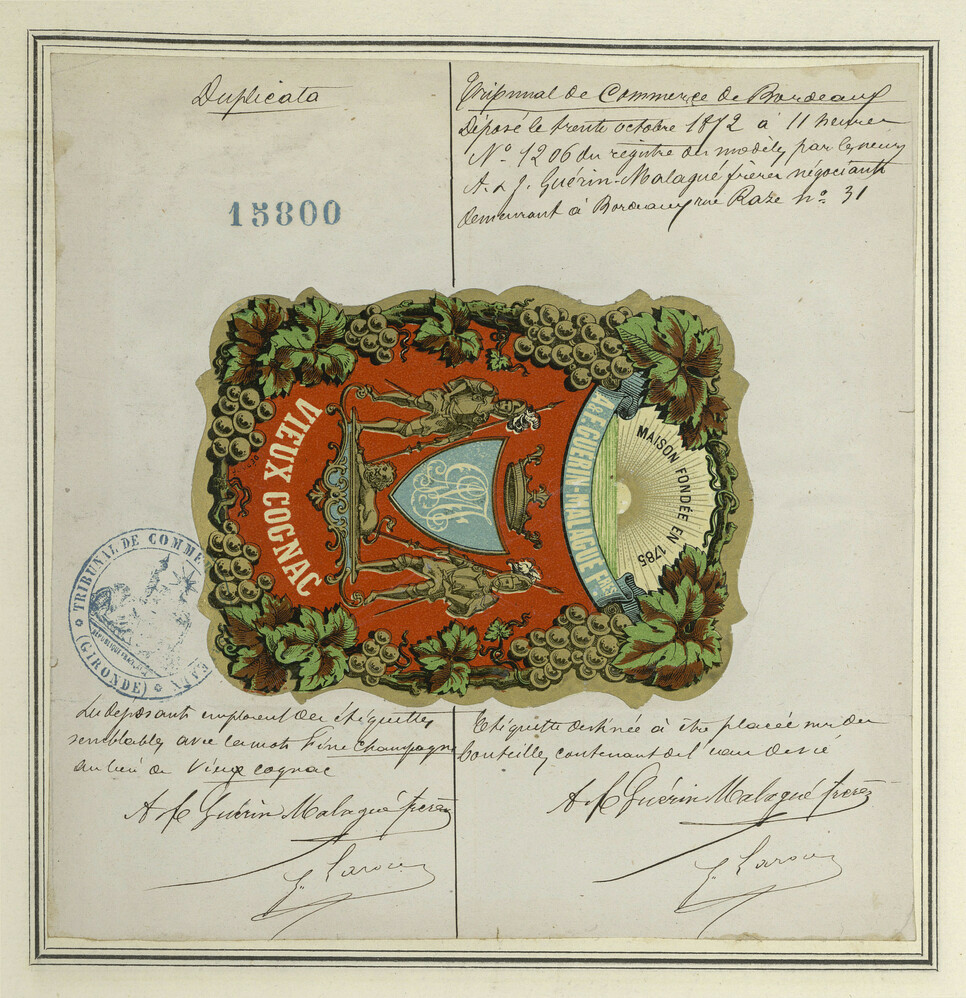 Duplicata
15800
Tribunal de Commerce de Bordeaux
Déposé le trente octobre 1872 à 11 heures
No 1206 du registre des modèles par les sieurs
A. & J. Guérin-Malagué frères négociants
demeurant à Bordeaux rue Raze no 31
MAISON FONDÉE EN 1785
A & F. GUÉRIN-MALAGUÉ FRES
VIEUX COGNAC
TRIBUNAL DE COMMERCE
(GIRONDE)
Les déposants emploient des étiquettes
semblables avec les mots Fine Champagne
au lieu de Vieux cognac
A & F Guérin Malagué frères
Etiquette destinée à être placée sur des
bouteilles contenant de l'eau de vie
A & F Guérin Malagué frères